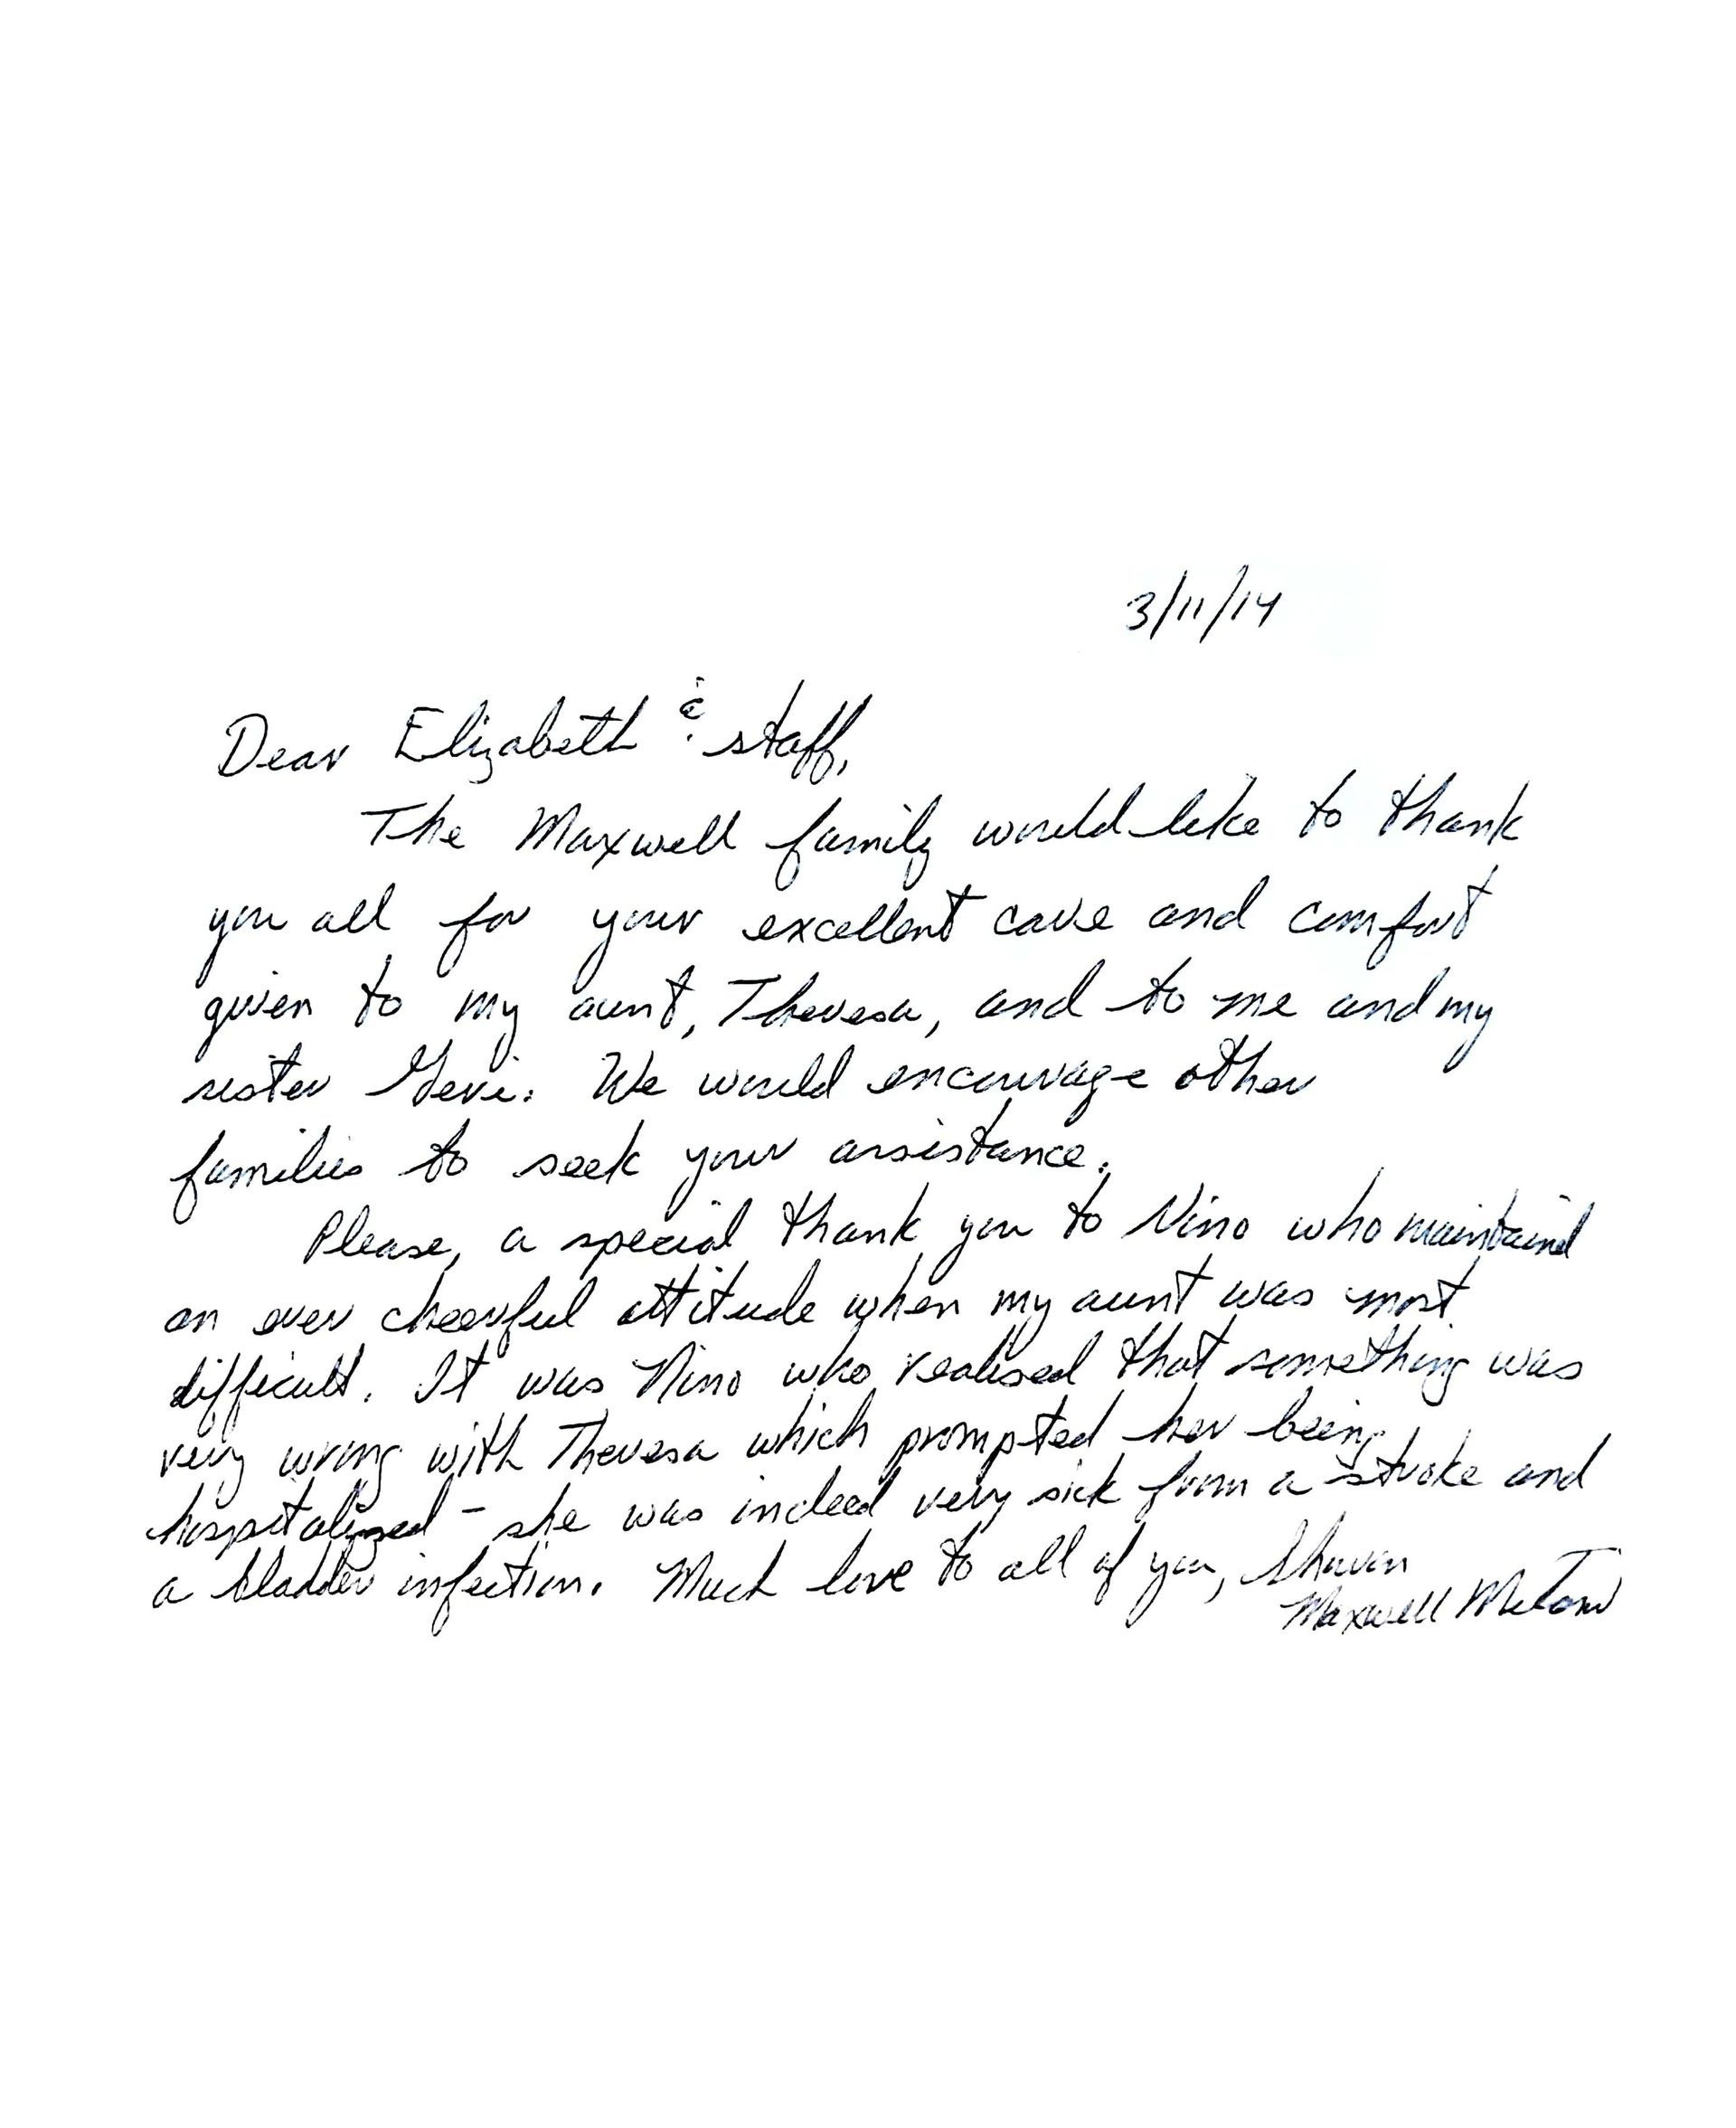 3/11/14
Dear Elizabeth & staff,
The Maxwell family would like to thank
you all for your excellent care and comfort
given to my aunt, Theresa, and to me and my
sister Geri. We would encourage other
families to seek your assistance.
Please, a special thank you to Nino who maintaind
an ever cheerful attitude when my aunt was most
difficult. It was Nino who realised that something was
very wrong with Theresa which prompted her being
hospitalized - she was indeed very sick from a stroke and
a bladder infection. Much love to all of you, Sharon
Maxwell